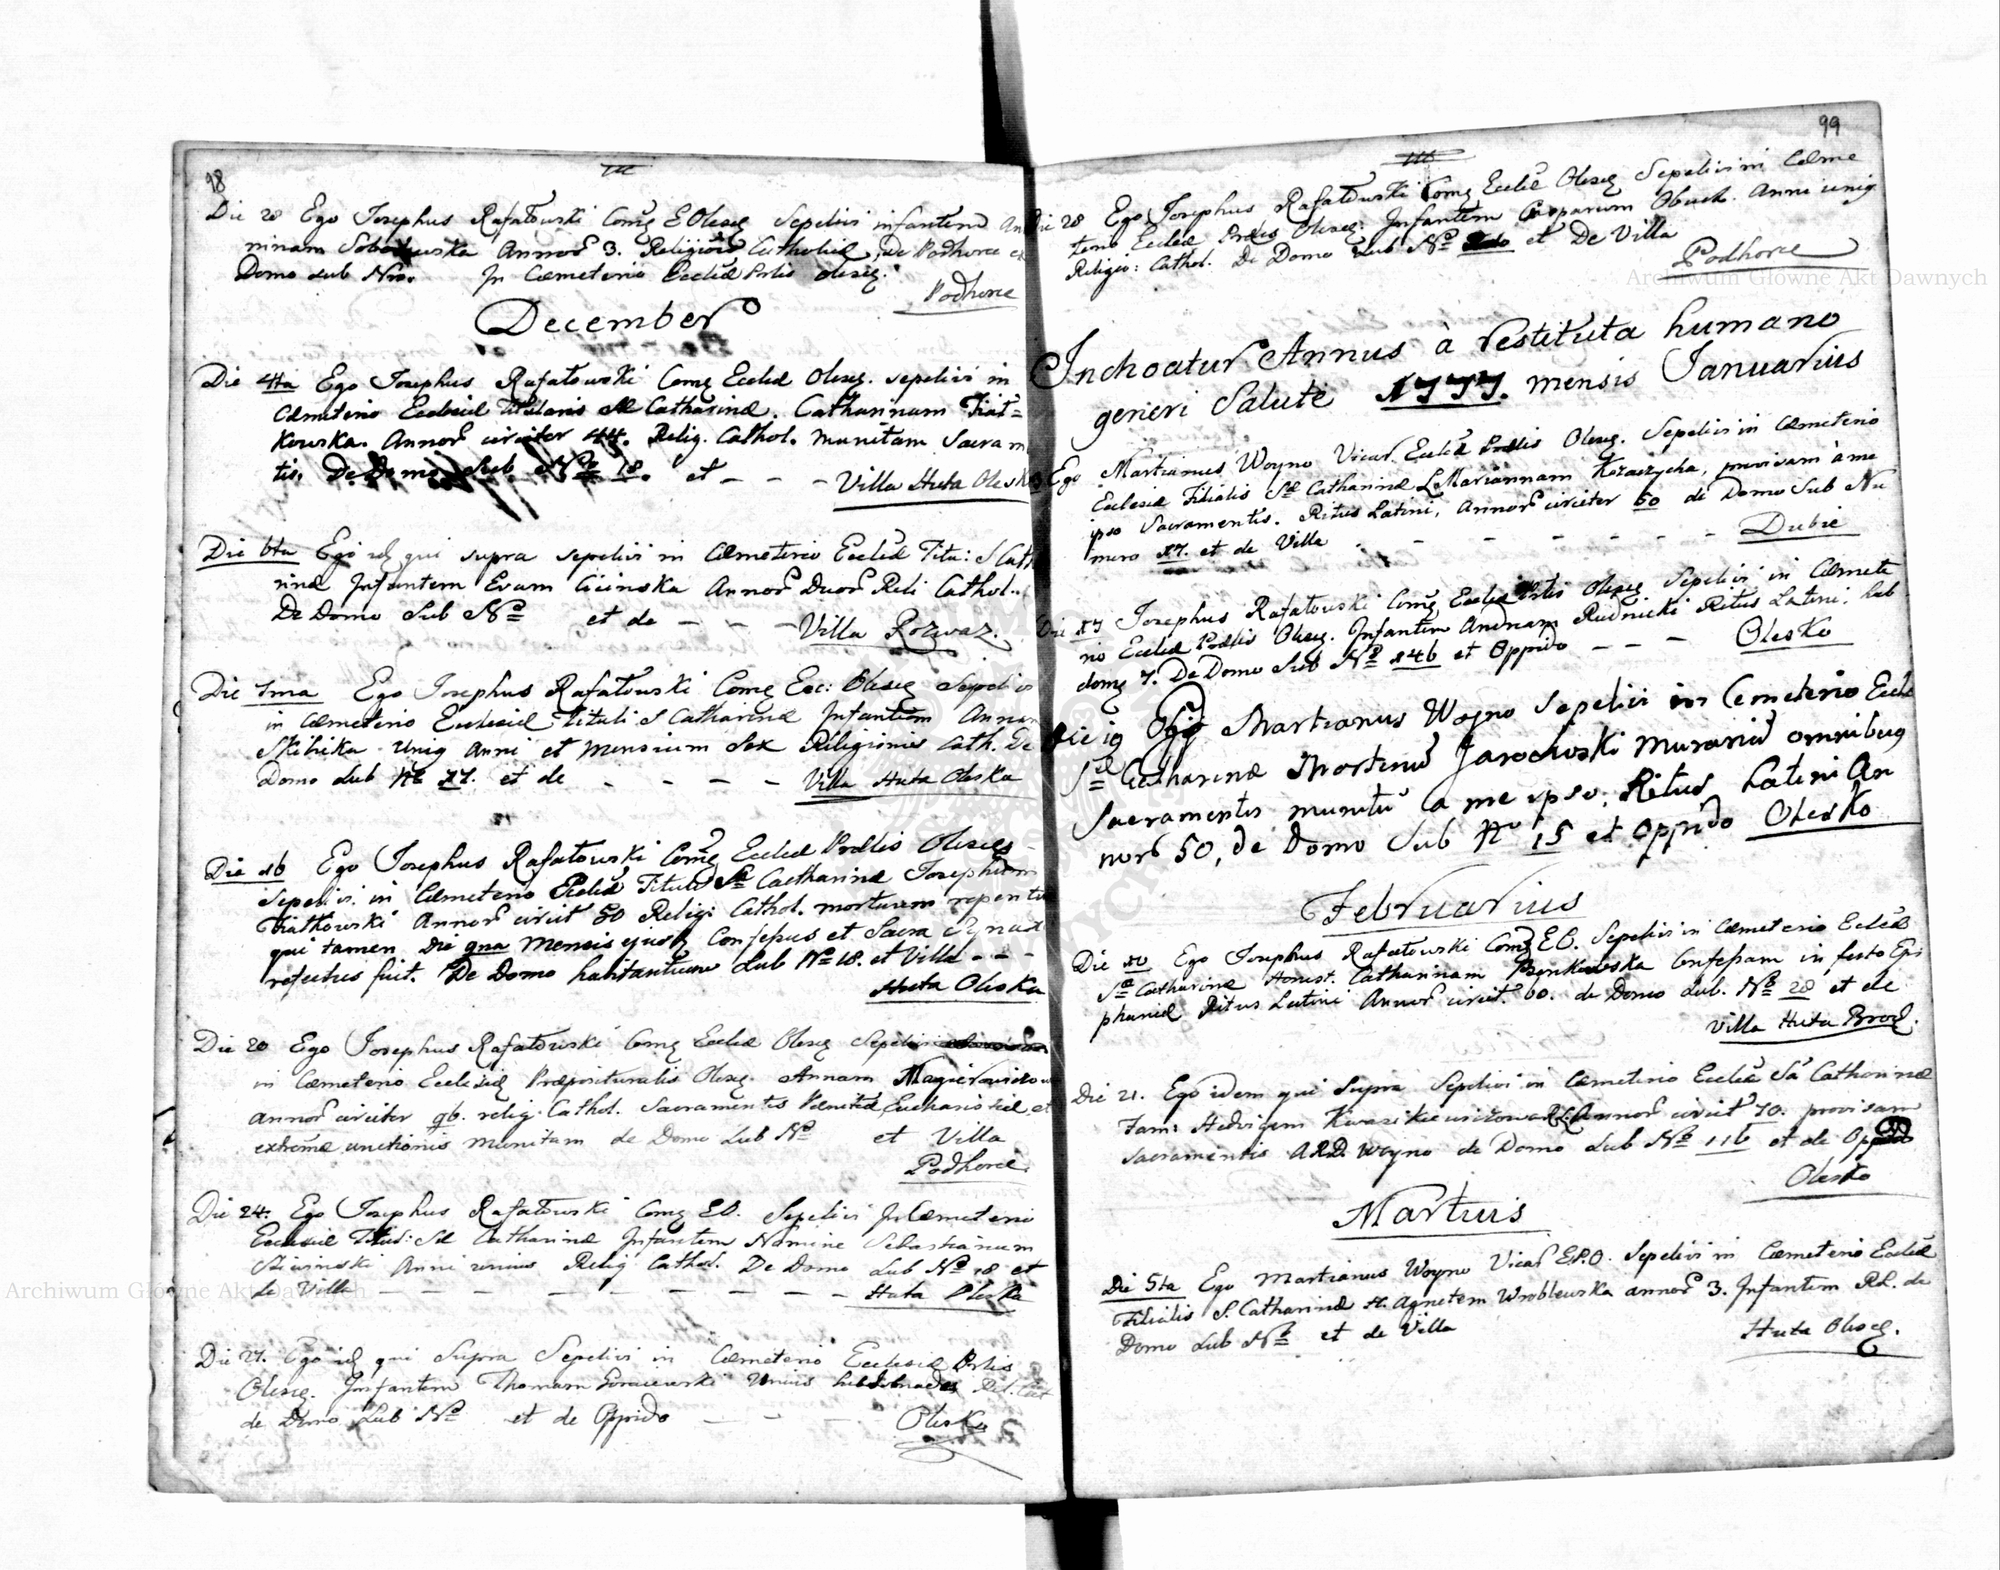 98
Die 28 Ego Josephus Rafałowski Comg E Olesg Sepelivi infantem An
ninam Annor 3. Religiois Catholicæ, De Podhorce
Domo sub Nro. In Cæmeterio Ecclæ Prlis Olesg.
Podhorce
December
Die 4ta Ego Josephus Rafałowski Comg Ecclæ Olesg. sepelivi in
Cæmeterio Ecclesiæ Titularis Sæ Catharinæ. Catharinam Fiał=
kowska. Annor circiter 44. Relig. Cathol. munitam Sacram
tis. De Domo Sub Nro 18. et - - - Villa Huta Olesk
Die 6ta Ego idq qui supra sepelivi in Cæmeterio Ecclæ Titu: S Cath
rinæ Infantem Evam Cicinska Annor Duor Reli Cathol.
De Domo Sub Nro et de - - - Villa Rozwaz.
Die 7ma Ego Josephus Rafałowski Comg Ecc: Olesg Sepelivi
in Cæmeterio Ecclesiæ tituli S Catharinæ Infantem Annam
Skibika Unig Anni et Mensium Sex Religionis Cath. De
Domo sub Nro 27. et de - - - - Villa Huta Oleska
Die 16 Ego Josephus Rafałowski Comg Ecclæ Prælis Olescg
Sepelivi in Cæmeterio Ecclæ Tituli Sæ Catharinæ Josephum
Fiałkowski Annor circit 80 Religi Cathol. mortuum repente
qui tamen Die 9na Mensis ejusdq Confessus et Sacra Synaxi
refectus fuit. De Domo habitantium sub Nro 18. et Villa - - -
Huta Oleska
Die 20 Ego Josephus Rafałowski Comg Ecclæ Olesg Sepelivi
in Cæmeterio Ecclesiæ Præpositturalis Olesg. Annam
Annor circiter 96. relig. Cathol. Sacramentis Pænitæ Eucharistiæ et
extremæ unctionis munitam de Domo sub Nro et Villa
Podhorce.
Die 24. Ego Josephus Rafałowski Comg EO. Sepelivi In Cæmeterio
Ecclesiæ Titul: Sæ Catharinæ Infantem Nomine Sebastianum
Anni unius Relig Cathol. De Domo sub Nro 18 et
de Villa - - - - - - - - Huta Oleska
Die 27. Ego idq qui Supra Sepelivi in Cæmeterio Ecclesiæ Prlis
Olescg. Infantem Thomam Unius Rel. Cat
de Domo sub Nro et de Oppido - - - Olesko
99
Die 28 Ego Josephus Rafałowski Comg Ecclæ Olesg Sepelivi in Cæme
terio Ecclæ Prælis Olesg: Infantem Casparum Anni unig
Religio: Cathol. De Domo sub Nro et De Villa
Podhorce
Inchoatur Annus à restituta humano
generi Salute 1777. mensis Januarius
Ego Martianus Woyno Vicar Ecclæ Prælis Olesg. Sepelivi in Cæmeterio
Ecclesiæ Filialis Sæ Catharinæ Mariannam Kozaczycha, provisam à me
ipso Sacramentis. Ritus Latini, Annor circiter 60 de Domo Sub Nu
mero 27. et de Villa - - - - - - Dubie
Die 17 Josephus Rafałowski Comg Ecclæ Prlis Olesg. Sepelivi in Cæmete
rio Ecclæ Prælis Olesg. Infantem Annam Rudnicki Ritus Latini, heb
domg 7. De Domo Sub Nro 146 et Oppido - - - Olesko
Die 19 Ego Martianus Woyno Sepelivi in Cemeterio Eccle
Sæ Catharinæ Martinū Jarocwski Murariū omnibug
Sacramentis munitū a me ipso; Ritus Latini An
nor 50, de Domo Sub Nro 15 et Oppido Olesko
Februarius
Die 10 Ego Josephus Rafałowski Comg EO. Sepelivi in Cæmeterio Ecclæ
Sæ Catharinæ Honest. Catharinam Confessam in festo Epi
phaniæ Ritus Latini Annor circit. 60. de Domo sub. Nro 28 et de
Villa Huta Brod.
Die 21. Ego idem qui supra Sepelivi in Cæmeterio Ecclæ Sæ Catharinæ
Fam: Hedvigem Annor circit 70. provisam
sacramentis ARD. Woyno de Domo sub Nro 116 et de Oppido
Olesko
Martius
Die 5ta Ego Martianus Woyno Vicar E.P.O. Sepelivi in Cæmeterio Ecclæ
Filialis S. Catharinæ H. Agnetem Wroblewska annor 3. Infantem RL. de
Domo sub Nro et de Villa Huta Olescg.
Archiwum Główne Akt Dawnych
Archiwum Główne Akt Dawnych